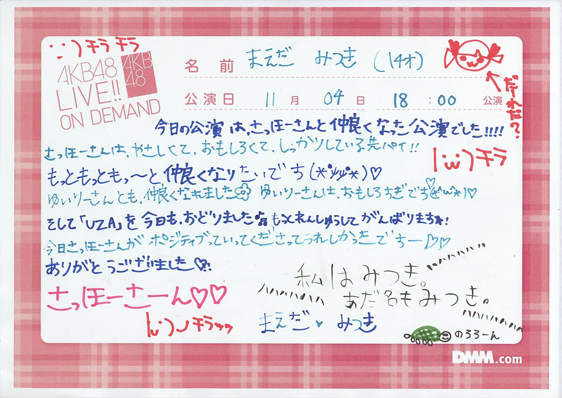 チラチラ
AKB48
LIVE!!
ON DEMAND
AKB
48
名前 まえだ みつき (14才)
だれだ?
公演日 11月 04日 18:00 公演
今日の公演は、さっほーさんと仲良くなった公演でした!!!!
さっほーさんは、やさしくて、おもしろくて、しっかりしている先パイ!!
チラ
もっともっともっ〜と仲良くなりたいでち
ゆいりーさんとも、仲良くなれました ゆいりーさんは、おもしろすぎでち
そして「UZA」を今日も、おどりました もっとれんしゅうしてがんばりますね!
今日さっほーさんが ポジティブっていってくださってうれしかったでちー♡♡
ありがとうございました♡
さっほーさーん♡♡
私はみつき。
あだ名もみつき。
チラッッ
まえだ みつき
のろろーん
DMM.com